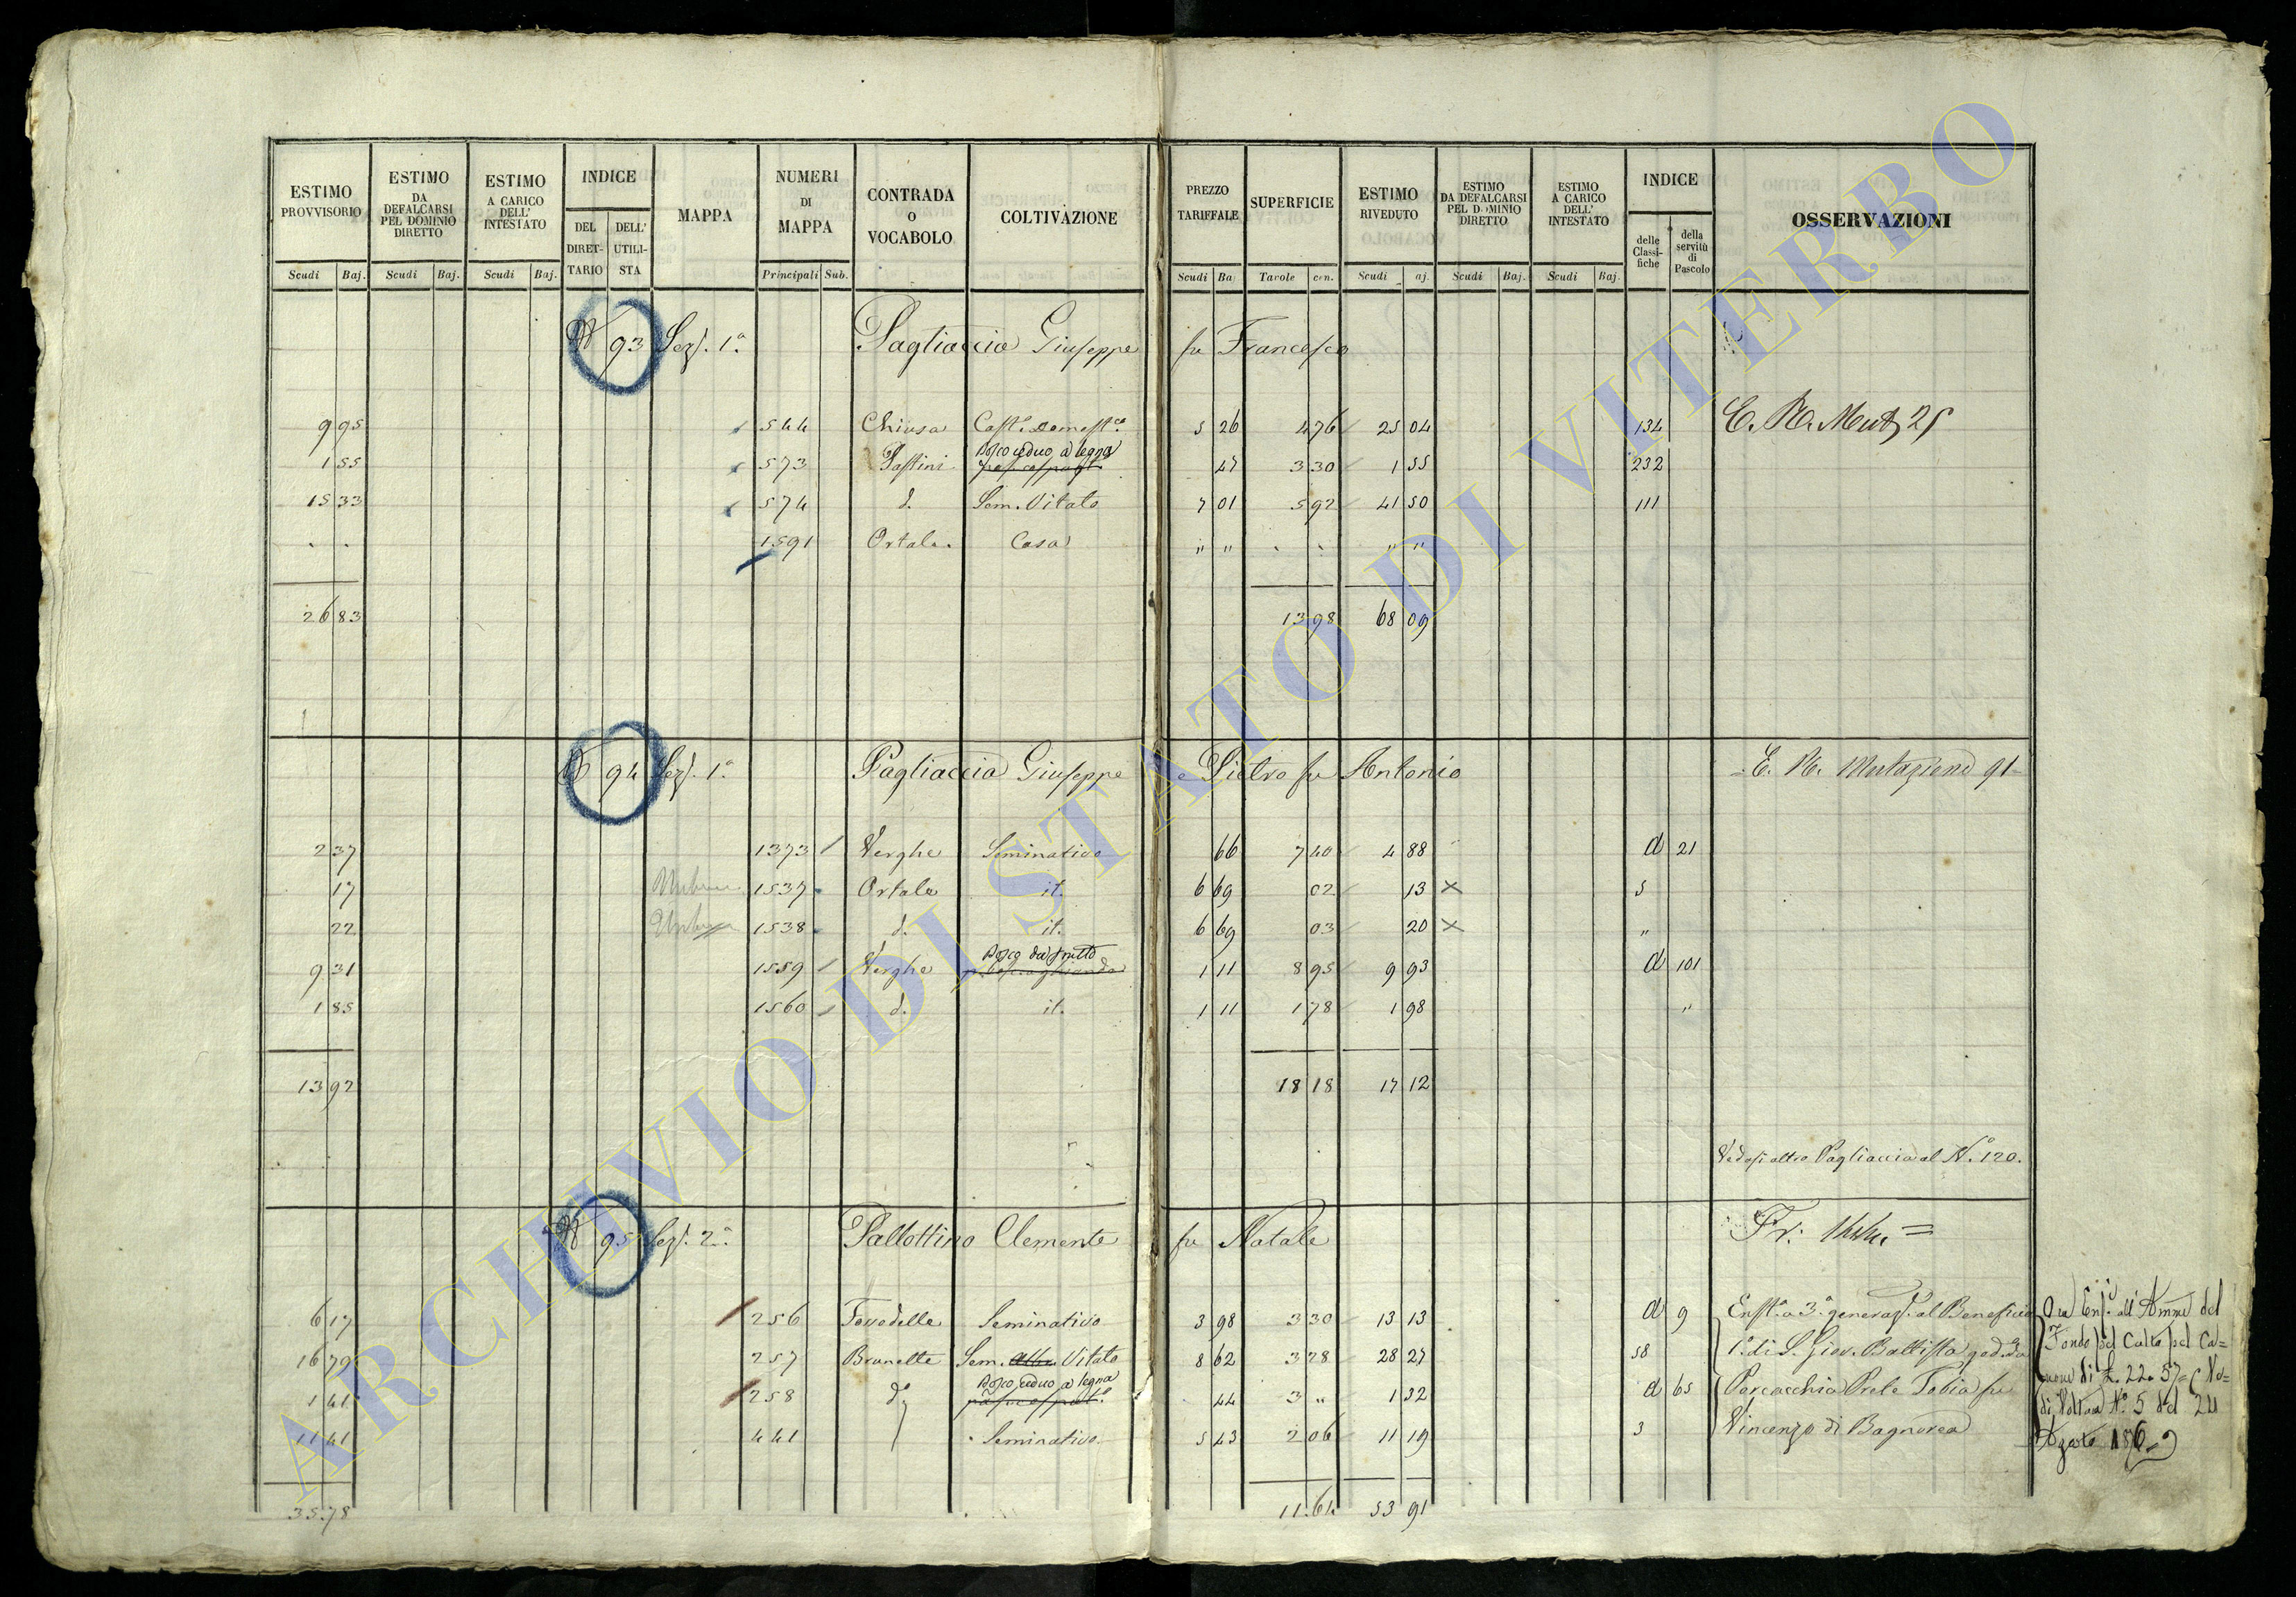 ESTIMO PROVVISORIO Scudi Baj. ESTIMO DA DEFALCARSI PEL DOMINIO DIRETTO Scudi Baj. ESTIMO A CARICO DELL' INTESTATO Scudi Baj. INDICE DEL DIRET-TARIO DELL' UTILI-STA MAPPA NUMERI DI MAPPA Principali Sub. CONTRADA O VOCABOLO COLTIVAZIONE PREZZO TARIFFALE Scudi Ba SUPERFICIE Tavole cen. ESTIMO RIVEDUTO Scudi aj. ESTIMO DA DEFALCARSI PEL DOMINIO DIRETTO Scudi Baj. ESTIMO A CARICO DELL' INTESTATO Scudi Baj. INDICE delle Classi-fiche della servitù di Pascolo OSSERVAZIONI
93 Sez. 1a Pagliaccia Giuseppe fu Francesco
9 95 544 Chiusa Cast. Domest. 5 26 4 76 25 04 134 E. R. Mut. 25
Bosco ceduo a legna
1 55 573 Pastini 47 3 30 1 55 232
15 33 574 d. Sem. Vitato 7 01 5 92 41 50 111
1591 Ortale Casa " " " "
26 83 13 98 68 09
94 Sez. 1a Pagliaccia Giuseppe e Pietro fu Antonio E. R. Mutazione 91
2 37 1373 Verghe Seminativo 66 7 40 4 88 d 21
17 1537 Ortale it. 6 69 02 13 × 5
22 1538 d. it. 6 69 03 20 × "
Bosco da frutto
9 31 1559 Verghe 1 11 8 95 9 93 d 101
1 85 1560 d. it. 1 11 1 78 1 98 "
13 92 18 18 17 12
Vedasi altro Pagliaccia al No. 120.
95 Sez. 2a Pallottino Clemente fu Natale Fr:
6 17 256 Seminativo 3 98 3 30 13 13 d 9 Enft. a 3a generaz. al Beneficio
16 79 257 Brunette Sem. Vitato 8 62 3 28 28 27 58 1o di S. Giov. Battista god. da
Bosco ceduo a legna
1 41 258 do 44 3 " 1 32 d 65 Porcacchia Prete Tobia fu
11 41 441 Seminativo 5 43 2 06 11 19 3 Vincenzo di Bagnorea
35.78 11.64 53 91
Ora Enf. all' Amme del
Fondo pel Culto pel Ca=
none di L. 22. 57= (No=
di Voltura No. 5 del 24
Agosto 1869)
ARCHIVIO DI STATO DI VITERBO